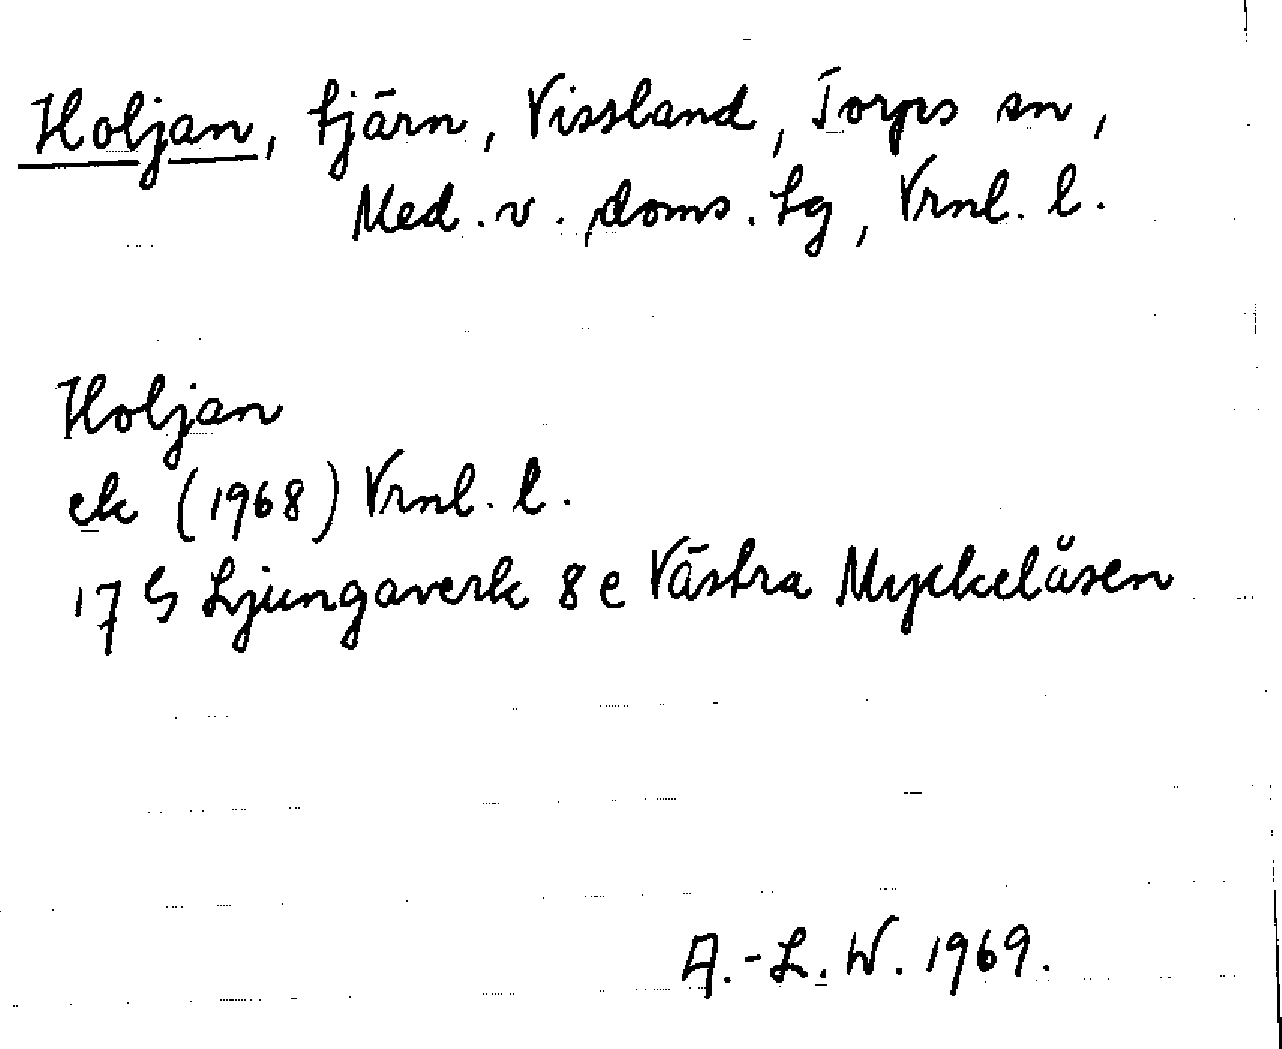 Holjan, tjärn, Vissland, Torps sn,
Med. v. doms. tg, Vrnl. l.
Holjan
ek (1968) Vrnl. l.
17 G Ljungaverk 8 e Västra Myckelåsen
A.-L. W. 1969.